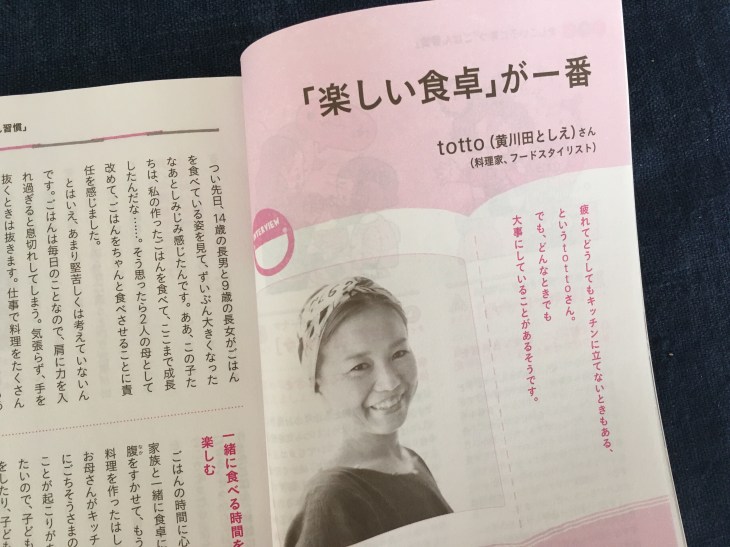 「楽しい食卓」が一番
totto（黄川田としえ）さん
（料理家、フードスタイリスト）
疲れてどうしてもキッチンに立てないときもある、
というtottoさん。
でも、どんなときでも
大事にしていることがあるそうです。
INTERVIEW
習慣」
つい先日、14歳の長男と9歳の長女がごはん
を食べている姿を見て、ずいぶん大きくなった
なあとしみじみ感じたんです。ああ、この子た
ちは、私の作ったごはんを食べて、ここまで成長
したんだな……。そう思ったら2人の母として
改めて、ごはんをちゃんと食べさせることに責
任を感じました。
とはいえ、あまり堅苦しくは考えていないん
です。ごはんは毎日のことなので、肩に力を入
れ過ぎると息切れしてしまう。気張らず、手を
抜くときは抜きます。仕事で料理をたくさん
一緒に食べる時間を
楽しむ
ごはんの時間に心
家族と一緒に食卓に
腹をすかせて、もう
料理を作ったはし
お母さんがキッチ
にごちそうさまの
ことが起こりが
たいので、子ども
をしたり、子ども